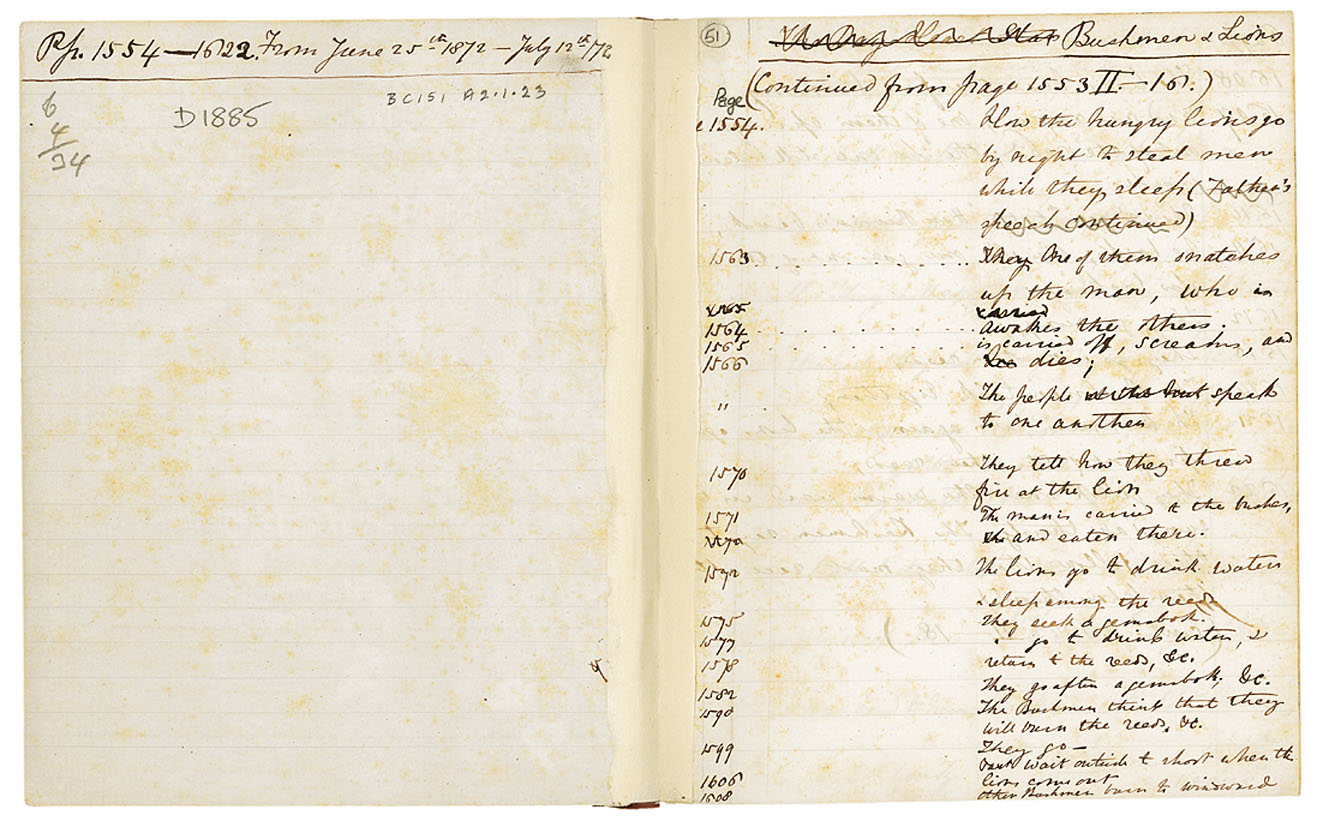 Pp. 1554 — 1622. From June 25th 1872 — July 12th /72
BC151 A2.1.23
D1885
6
4
34
51
Bushmen & Lions
(Continued from page 1553 II.—16.)
Page
1554. How the hungry lions go
by night to steal men
while they sleep (Father's
speech continued)
1563 . . . . . . . . . . . They One of them snatches
up the man, who is
1565 carried
1564 . . . . . . . . . . awakes the others.
1565 . . . . . . . . . . is carried off, screams, and
1566 dies;
" The people speak
to one another
1570 They tell how they threw
fire at the lion
1571 The man is carried to the bushes,
and eaten there.
1572 The lions go to drink water
& sleep among the reeds
1575 They seek a gemsbok.
1577 " go to drink water, &
1578 return to the reeds, &c.
1582 They go after a gemsbok, &c.
1590 The Bushmen think that they
will burn the reeds, &c.
1599 They go —
wait outside to shoot when the
1606 lions come out
1608 other Bushmen burn to windward